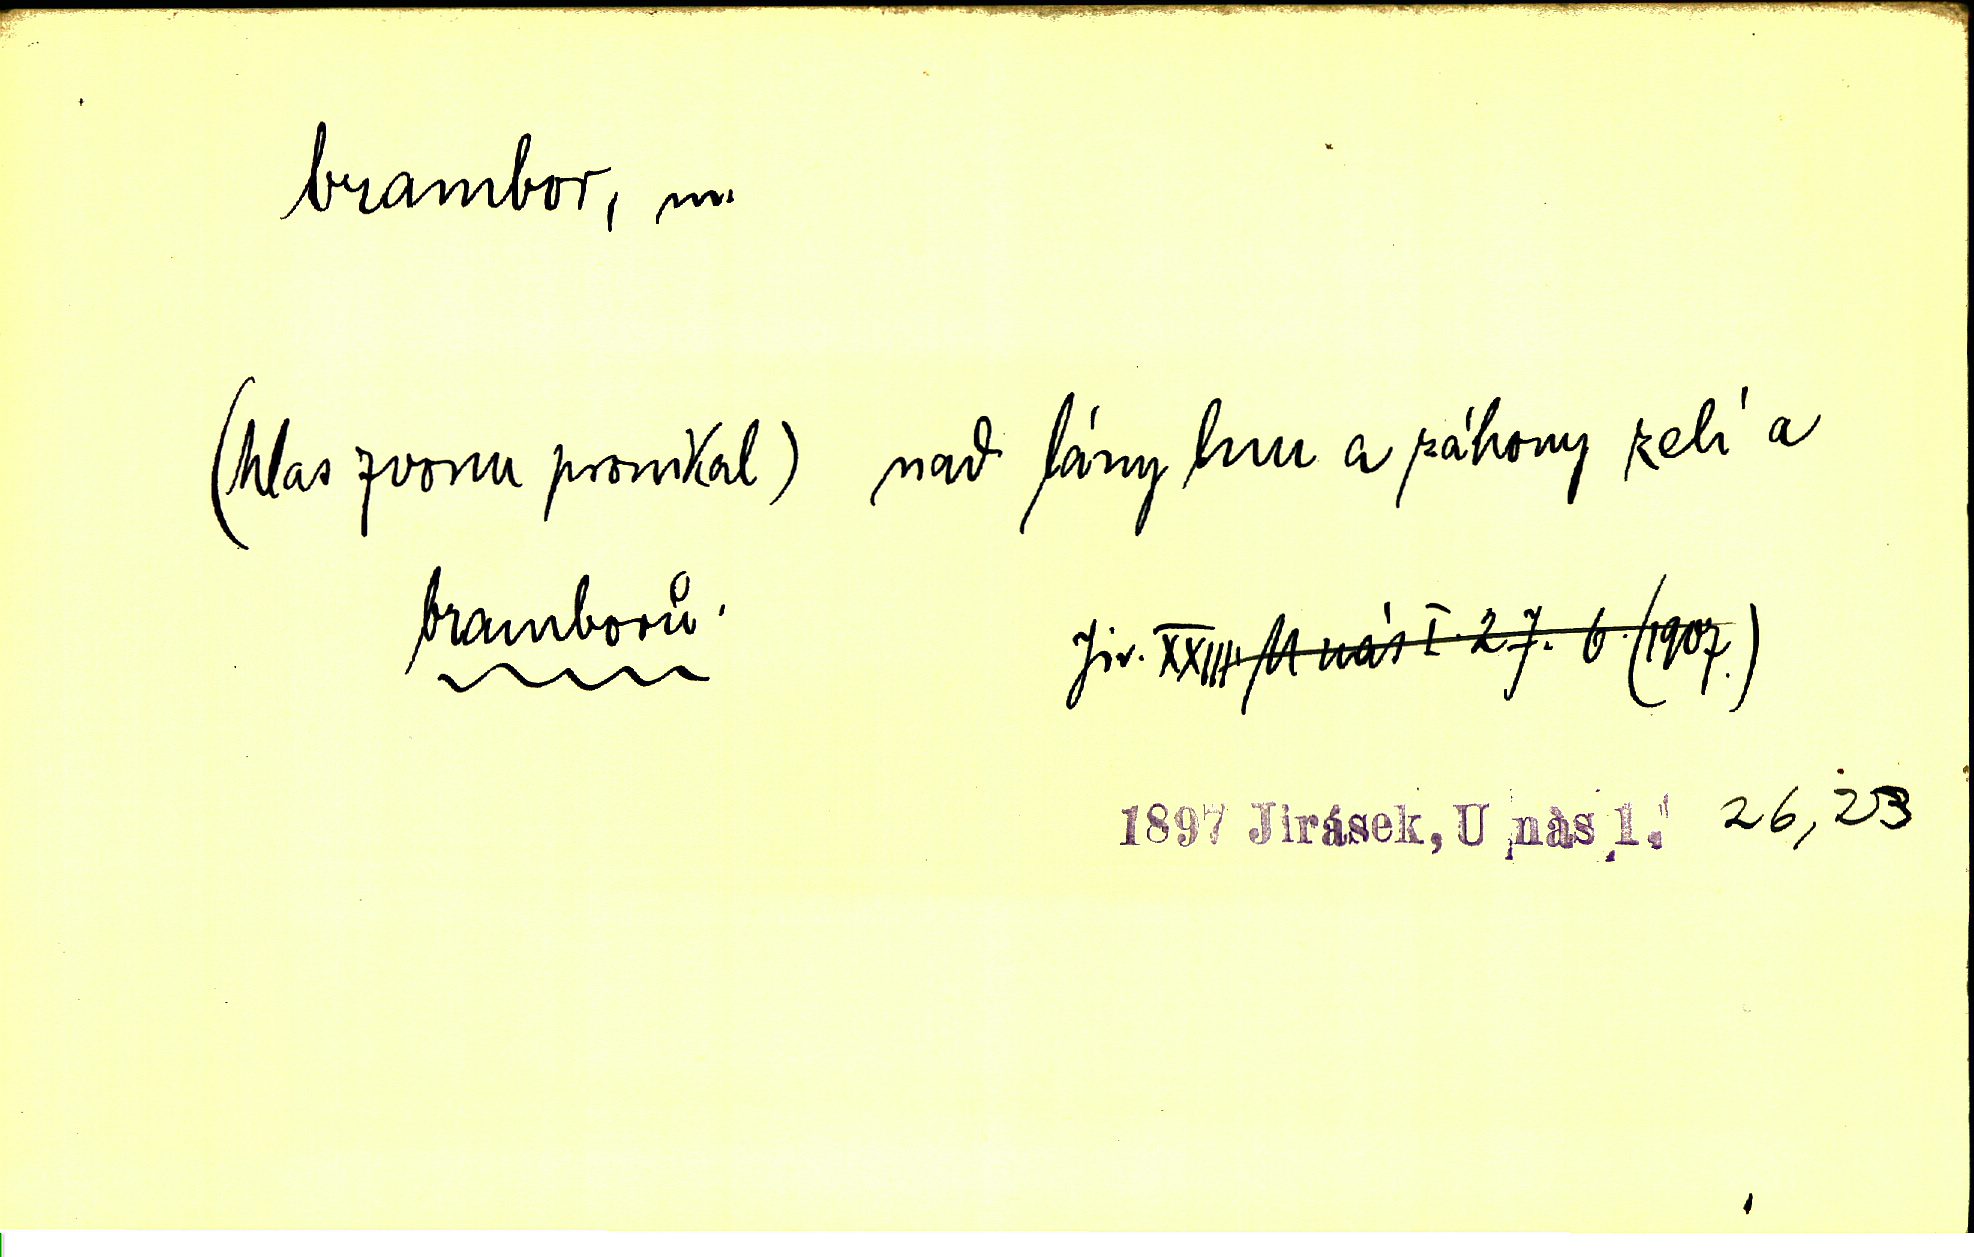 brambor, m.
(hlas zvonu pronikal) nad lány lnu a záhony zelí a
bramborů.
Jir. XXIII U nás I. 27. 6. (1907.)
1897 Jirásek, U nás 1. 26, 23